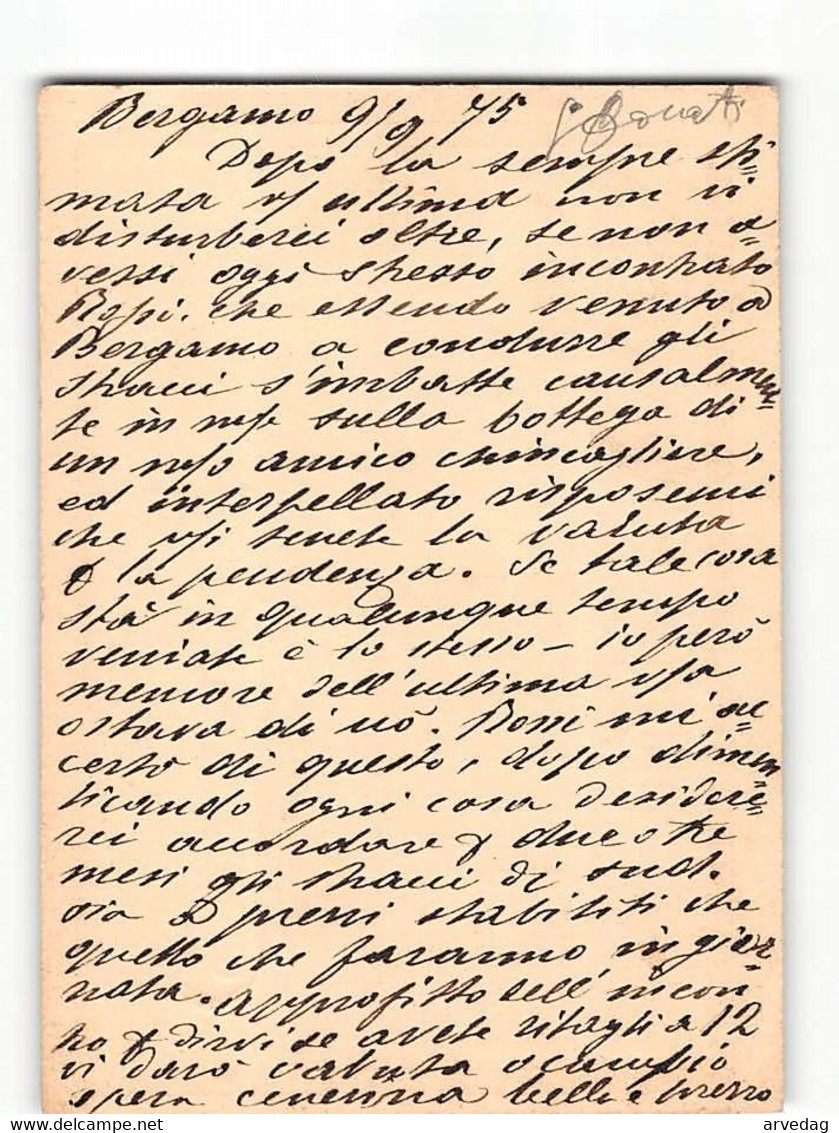 Bergamo 9/9 75
Dopo la sempre sti=
mata v/ ultima non vi
disturberei oltre, se non a=
vessi oggi stesso incontrato
Rossi. che essendo venuto a
Bergamo a condurre gli
stracci s'imbatte causalmen=
te in me sulla bottega di
un m/o amico chincagliere,
ed interpellato risposemi
che v/i tenete la valuta
la pendenza. Se tale cosa
stà in qualunque tempo
veniate è lo stesso – io però
memore dell'ultima v/a
ostava di nò. Rossi mi ac=
certò di questo, dopo dimen
ticando ogni cosa desidere=
rei accordare due o tre
mesi gli stracci di sud.
sia a prezzi stabiliti che
quello che faranno in gior=
nata. approfitto dell'incon
tro dirvi se avete ritagli a 12
vi darò valuta o campio
opera bella e prezzo
arvedag